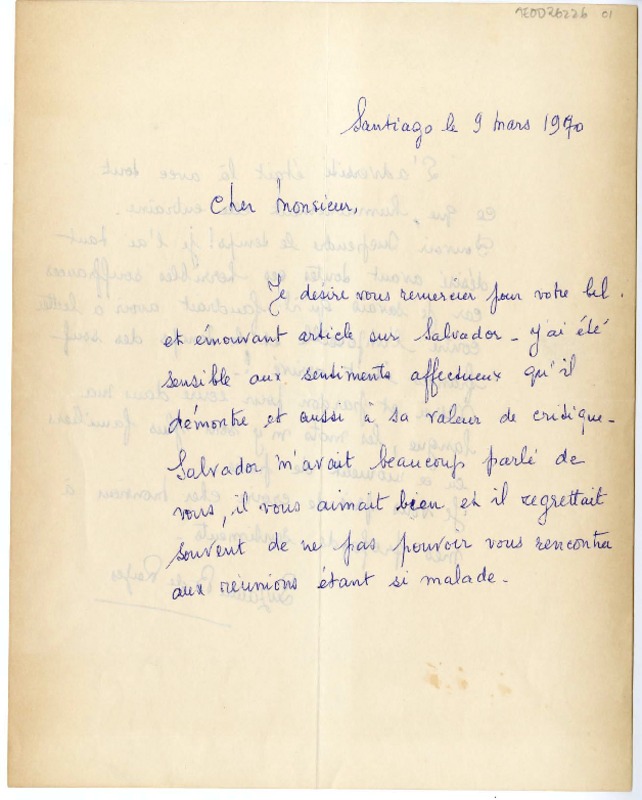 AEOD26226 01
Santiago le 9 mars 1970
Cher Monsieur,
Je désire vous remercier pour votre bel
et émouvant article sur Salvador - y'ai été
sensible aux sentiments affectueux qu'il
démontre et aussi à sa valeur de critique -
Salvador m'avait beaucoup parlé de
vous, il vous aimait bien et il regrettait
souvent de ne pas pouvoir vous rencontrer
aux réunions étant si malade -